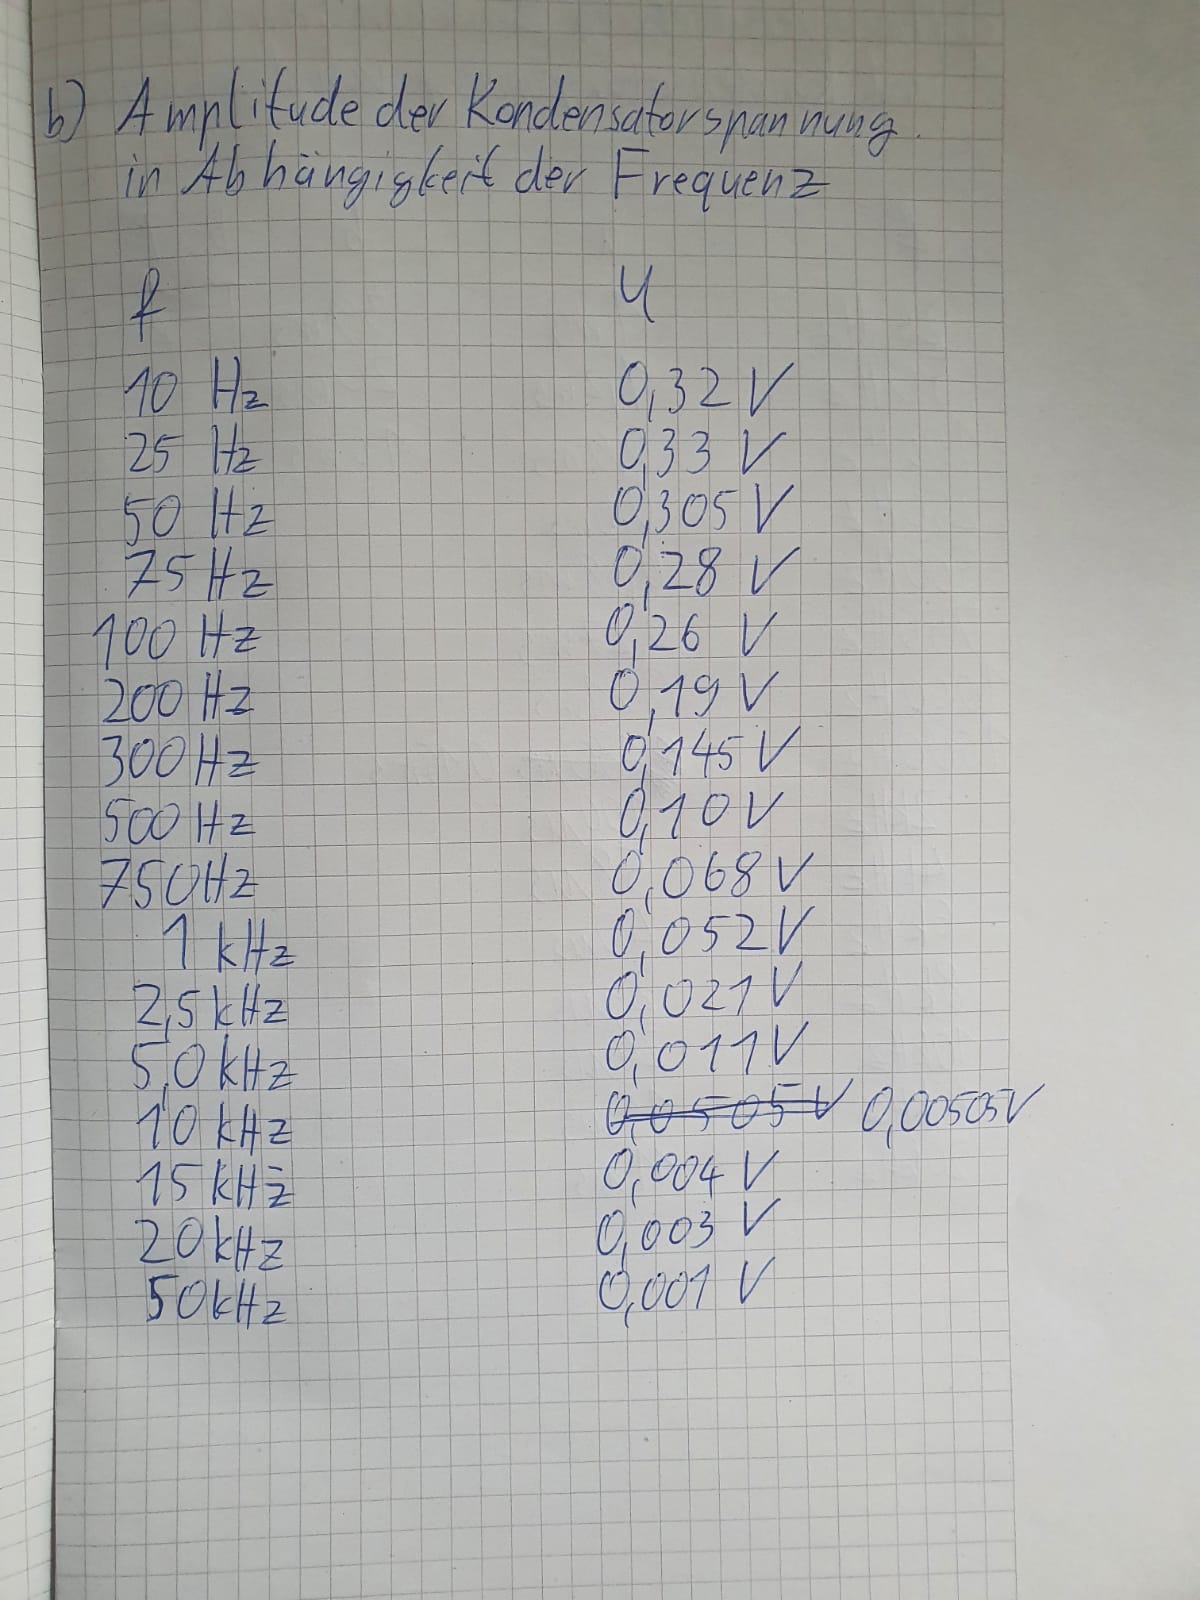 b) Amplitude der Kondensatorspannung.
in Abhängigkeit der Frequenz
f U
10 Hz 0,32 V
25 Hz 0,33 V
50 Hz 0,305 V
75 Hz 0,28 V
100 Hz 0,26 V
200 Hz 0,19 V
300 Hz 0,145 V
500 Hz 0,10 V
750 Hz 0,068 V
1 kHz 0,052 V
2,5 kHz 0,021 V
5,0 kHz 0,011 V
10 kHz 0,0505 V 0,00505 V
15 kHz 0,004 V
20 kHz 0,003 V
50 kHz 0,001 V